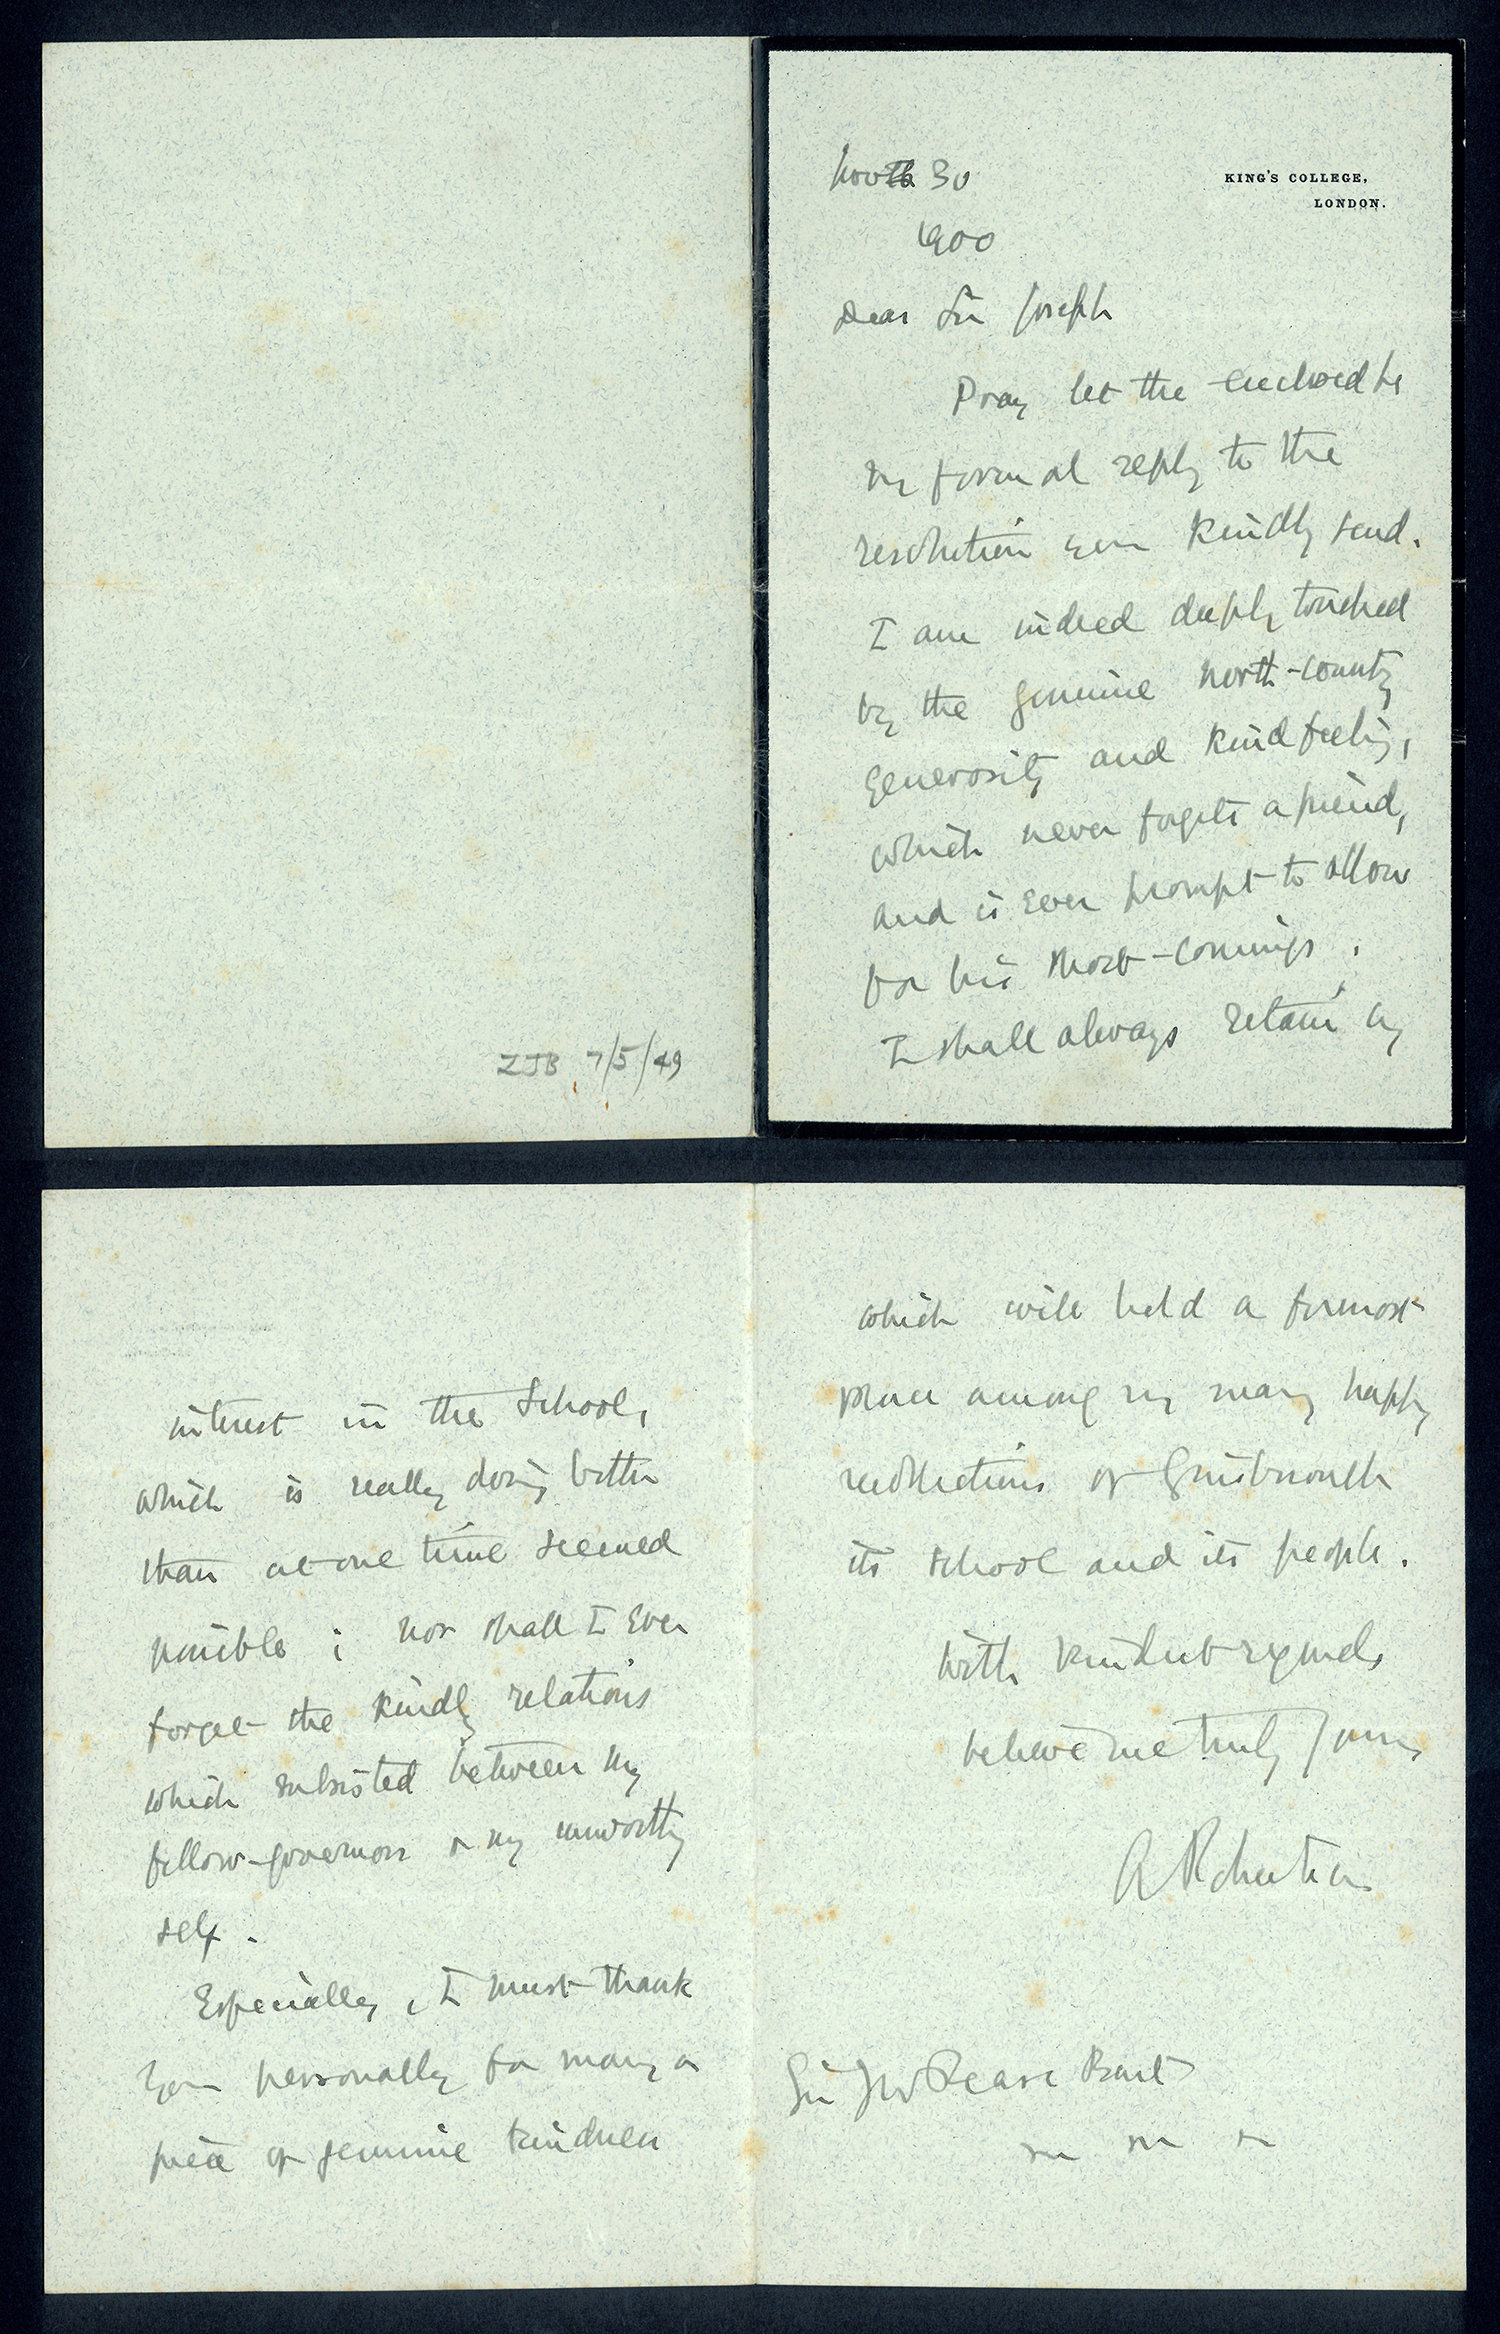 ZJB 7/5/49
KING'S COLLEGE,
LONDON.
Nov 30
1900
Dear Sir Joseph
Pray let the enclosed be
my formal reply to the
resolution you kindly send.
I am indeed deeply touched
by the genuine north-country
generosity and kind feeling,
which never forgets a friend,
and is ever prompt to allow
for his short-comings.
I shall always retain my
interest in the School,
which is really doing better
than at one time seemed
possible; nor shall I ever
forget the kindly relations
which subsisted between my
fellow-governors & my unworthy
self.
Especially, I must thank
you personally for many a
piece of genuine kindness
which will hold a foremost
place among my many happy
recollections of Guisbrough
its school and its people.
With kindest regards
believe me truly yours
A Robertson
Sir JW Pease Bart